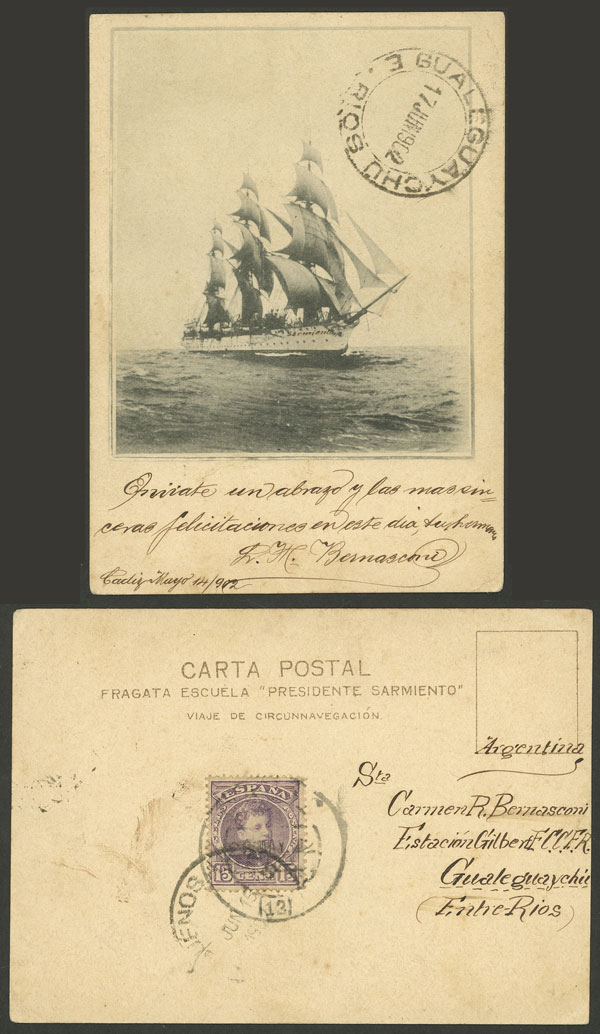 GUALEGUAYCHU
E. RIOS
17 JUN 1902
Enviate un abrazo y las mas sin=
ceras felicitaciones en este dia, tu hermano
H. Bernasconi
Cadiz Mayo 14/902
CARTA POSTAL
FRAGATA ESCUELA "PRESIDENTE SARMIENTO"
VIAJE DE CIRCUNNAVEGACIÓN
Argentina
Sta
Carmen R. Bernasconi
Estación Gilbert F.C.C.E.R.
Gualeguaychú
(Entre-Rios)
ESPAÑA
15 CENT 15
ENOS
JUN
(12)